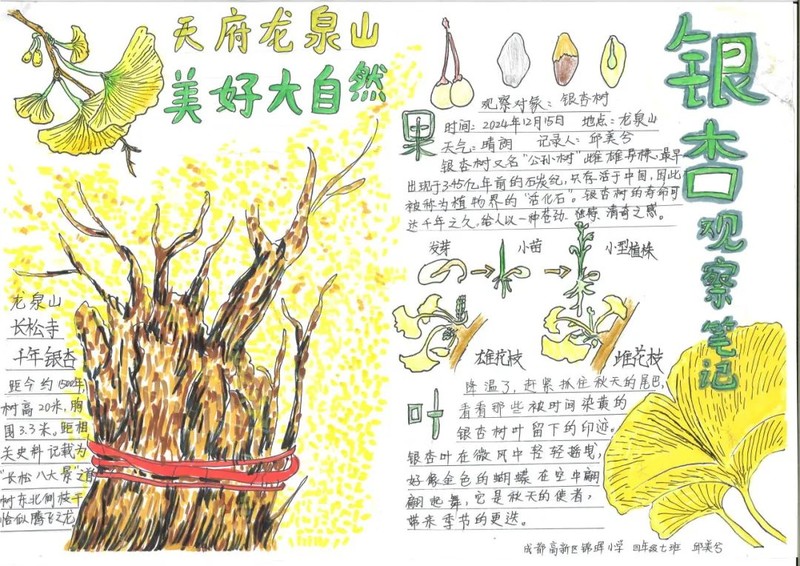 天府龙泉山
美好大自然
银杏观察笔记
观察对象：银杏树
果
时间：2024年12月15日 地点：龙泉山
天气：晴朗 记录人：邱美兮
银杏树又名"公孙树"雌雄异株，最早
出现于3.45亿年前的石炭纪，只存活于中国，因此
被称为植物界的"活化石"。银杏树的寿命可
达千年之久，给人以一种苍劲、独特、清奇之感。
发芽 小苗 小型植株
雄花枝 雌花枝
龙泉山
长松寺
千年银杏
距今约1500年，
树高20米，胸
围3.3米。距相
关史料记载为
"长松八大景"之首
树东北侧枝干
恰似腾飞之龙
叶
降温了，赶紧抓住秋天的尾巴，
看看那些被时间染黄的
银杏树叶留下的印迹。
银杏叶在微风中轻轻摇曳，
好像金色的蝴蝶在空中翩
翩起舞，它是秋天的使者，
带来季节的更迭。
成都高新区锦晖小学 四年级七班 邱美兮